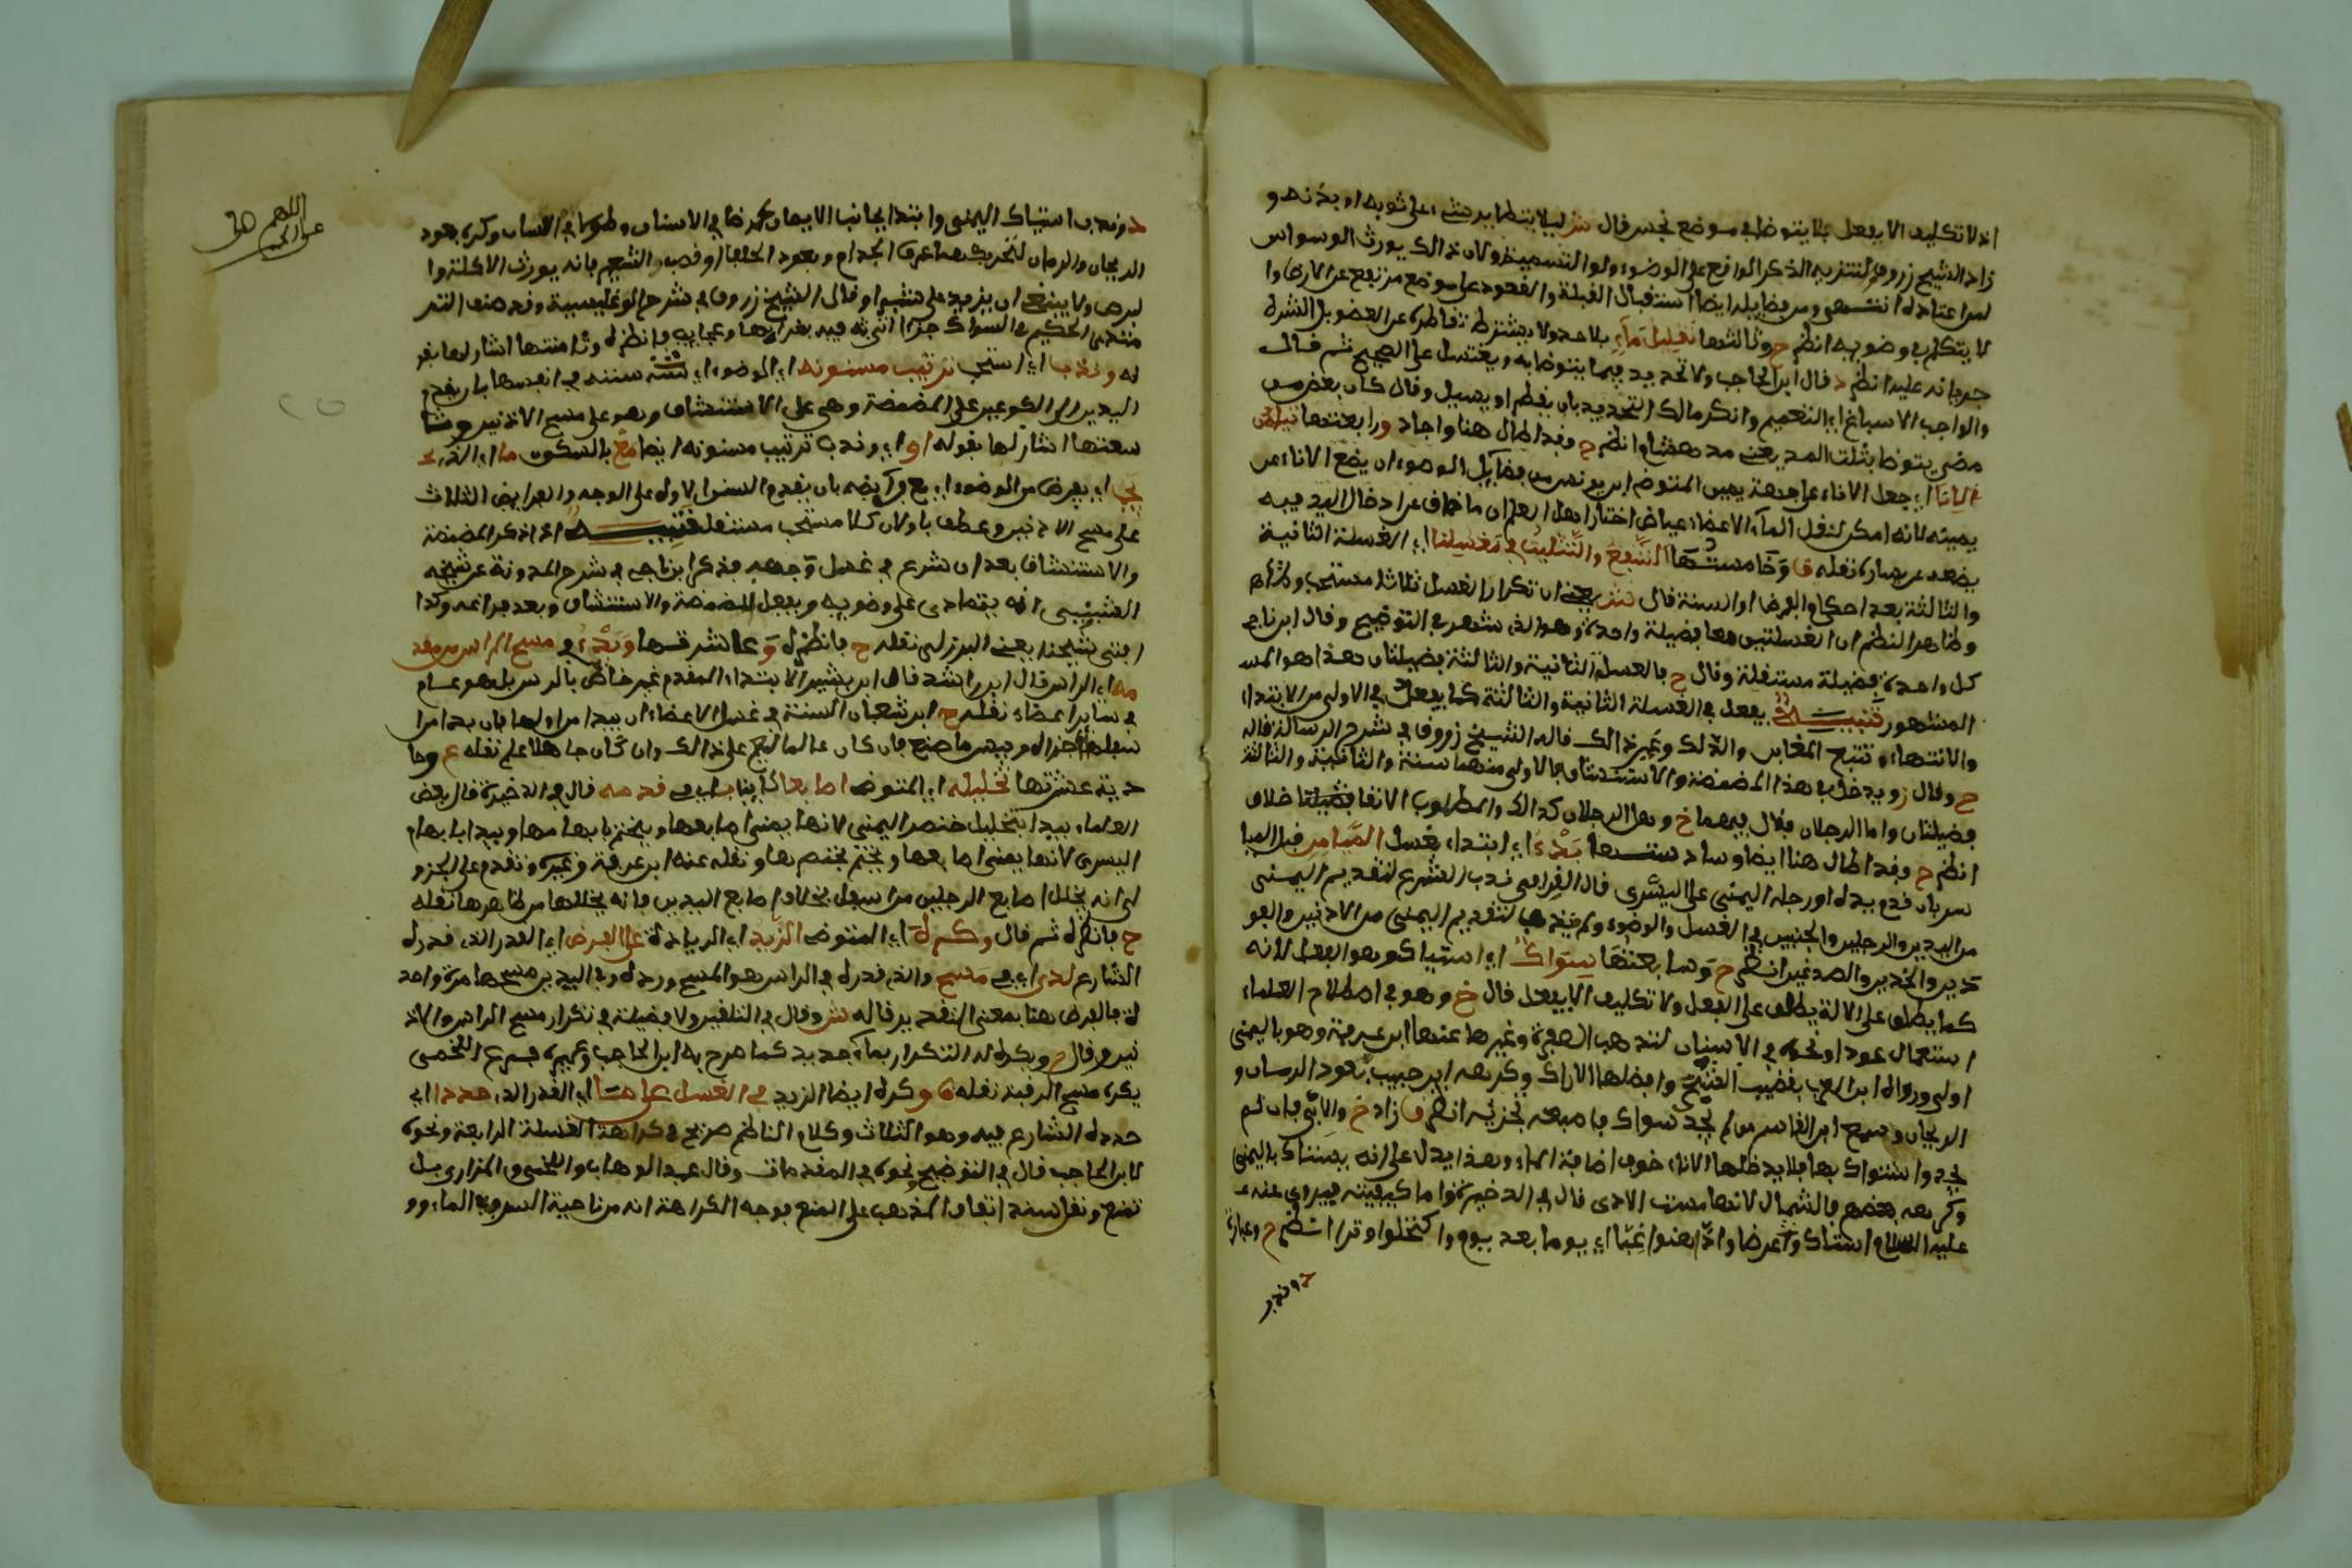 اذ لا تكليف الا بفعل فلا يتوضا في موضع نجس قال ليلا يتطاير شيء على ثوبه او بدنه و
زاد الشيخ زروق لتنزيه الذكر الواقع على الوضوء ولو التسمية ولان ذالك يورث الوسواس
ومن فضايله ايضا استقبال القبلة والقعود على موضع مرتفع عن الارض وا
لا يتكلم في وضويه انظر ح وثالثها تقليل ماء بلا حد ولا يشترط تقاطره عن العضو بل الشرط
جريانه عليه انظر قال ابن الحاجب ولا تحديد فيما يتوضا به ويغتسل على الصحيح ثم قال
والواجب الاسباغ اي التعميم وانكر مالك التحديد بان يقطر او يسيل وقال كان بعض من
مضى يتوضا بثلث المد يعني مد هشام انظر ح وقد اطال هنا واجاد ورابعتها تيامن
الانا اي جعل الاناء على جهة يمين المتوضي ابن يونس من فضايل الوضوء ان يضع الاناء عن
يمينه لانه امكن لنقل الماء الى الاعضاء عياض اختار اهل العلم ان ما ضاق عن ادخال اليد فيه
يضعه عن يساره نقله ق وخامستها الشفع والتثليث في مغسولنا اي الغسلة الثانية
والثالثة بعد احكام الفرض او السنة قال يعني ان تكرار الغسل ثلاثا مستحب
وظاهر النظم ان الغسلتين معا فضيلة واحدة وهو الذي شهر في التوضيح وقال ابن ناجي
كل واحدة فضيلة مستقلة وقال ح فالغسلة الثانية والثالثة فضيلتان هذا هو المشـ
المشهور تنبيه يفعل في الغسلة الثانية والثالثة كما يفعل في الاولى من الابتداء
والانتهاء وتتبع المغابن والدلك وغير ذالك قاله الشيخ زروق في شرح الرسالة قاله
ح وقال ز ويدخل في هذا المضمضة والاستنشاق فالاولى منهما سنة والثانية والثالثة
فضيلتان واما الرجلان فقال فيهما خ وهل الرجلان كذالك والمطلوب الانقا خلاف
انظر ح وقد اطال هنا ايضا وسادستها بدء اي ابتداء بغسل الميامن قبل الميا
سر بان قدم يده او رجله اليمنى على اليسرى قال القرافي ندب الشرع لتقديم اليمنى
من اليدين والرجلين والجنبين في الغسل والوضوء ولم يندب لتقديم اليمنى من الاذنين والفو
دين والخدين والصدغين انظر ح وسابعتها سواك اي استياك وهو الفعل لانه
كما يطلق على الالة يطلق على الفعل ولا تكليف الا بفعل قال خ وهو في اصطلاح العلماء
استعمال عود او نحوه في الاسنان لتذهب الصفرة وغيرها عنها ابن عرفة وهو باليمنى
اولى ابن العربي بقضيب الشجر وافضلها الاراك وكرهه ابن حبيب بعود الرمان و
الريحان وسمع ابن القاسم من لم يجد سواكا فاصبعه تجزئه انظر ق زاد خ والاتي فان لم
يجد واستواك بها فلا يدخلها الاناء خوف اضافة الماء وهذا يدل على انه يستاك باليمنى
وكرهه بعضهم بالشمال لانها مست الاذى قال في الذخيرة واما كيفيته فيروى عنه
عليه السلام استاكوا عرضا وادهنوا غبا اي يوما بعد يوم واكتحلوا وترا انظر ح وعبارة
وندب استياك اليمنى وابتدا بجانب الايمن عرضا في الاسنان وطولا في اللسان وكره بعود
الريحان والرمان لتحريكهما عرق الجذام وبعود الحلفا او قصب الشعير فانه يورث الاكلة وا
لبرص ولا ينبغي ان يزيد على شبر وقال الشيخ زروق في شرح الوغليسية وقد صنف التر
مذي الحكيم في السواك جزءا اتى فيه بغرايبها وعجايب فانظره وثامنتها اشار لها بقو
له وندب اي استحب ترتيب مسنونه اي الوضوء اي سننه في انفسها بان يقدم
اليدين الى الكوعين على المضمضة وهي على الاستنشاق وهو على مسح الاذنين وتا
سعتها اشار لها بقوله او اي وندب ترتيب مسنونه ايضا مع بالسكون ما اي الذي
يجب اي يفرض من الوضوء اي مع فرايضه بان يقدم السنن الاولى على الوجه والفرايض الثلاث
على مسح الاذنين وعطف باو لان كلا مستحب مستقل تنبيه اذا ذكر المضمضة
والاستنشاق بعد ان شرع في غسل وجهه فذكر ابن ناجي في شرح المدونة عن شيخه
الشبيبي انه يتمادى على وضويه ويفعل المضمضة والاستنشاق وبعد فراغه وكذا
افتى شيخنا يعني البرزلي نقله ح فانظره وعاشرتها وبدء في مسح الراس من مقد
مه اي الراس قال ابن راشد قال ابن بشير الابتداء المقدم غير خاص بالراس بل هو عام
في ساير الاعضاء نقله ح ابن شعبان السنة في غسل الاعضاء ان يبدا من اولها فان بدا من
اسفلها اجزاه وبيس ما صنع فان كان عالما ليم على ذالك وان كان جاهلا علم نقله ع وحا
دية عشرتها تخليله اي المتوضي اصابعا كاينات في قدمه قال في الذخيرة قال بعض
العلماء يبدا بتخليل خنصر اليمنى لانها يمنى اصابعها ويختم بابهامها ويبدا بابهام
اليسرى لانها يمنى اصابعها ويختم بخنصرها ونقله عنه ابن عرفة وغيره وتقدم على الجزو
لي انه يخلل اصابع الرجلين من اسفل بخلاف اصابع اليدين فانه يخللها من ظاهرها نقله
ح فانظره ثم قال وكره اي المتوضي الزيد اي الزيادة على الفرض اي القدر الذي قدره
الشارع لدى اي في مسح والذي قدره في الراس هو المسح ورده وفي اليدين مسحها مرة واحد
ة فالفرض هنا بمعنى التقدير قاله وقال في التلقين ولا فضيلة في تكرار مسح الراس والاذ
نين وقال ح ويكره له التكرار بماء جديد كما صرح به ابن الحاجب وغيره اللخمي
يكره مسح الرقبة نقله ق وكره ايضا الزيد في الغسل على ما اي القدر الذي حدد اي
حدده الشارع فيه وهو الثلاث وكلام الناظم صريح في كراهة الغسلة الرابعة ونحوه
لابن الحاجب قال في التوضيح ونحوه في المقدمات وقال عبد الوهاب واللخمي والمازري بل
تمنع ونقل سند اتفاق المذهب على المنع فوجه الكراهة انه من ناحية السرف في الماء وو